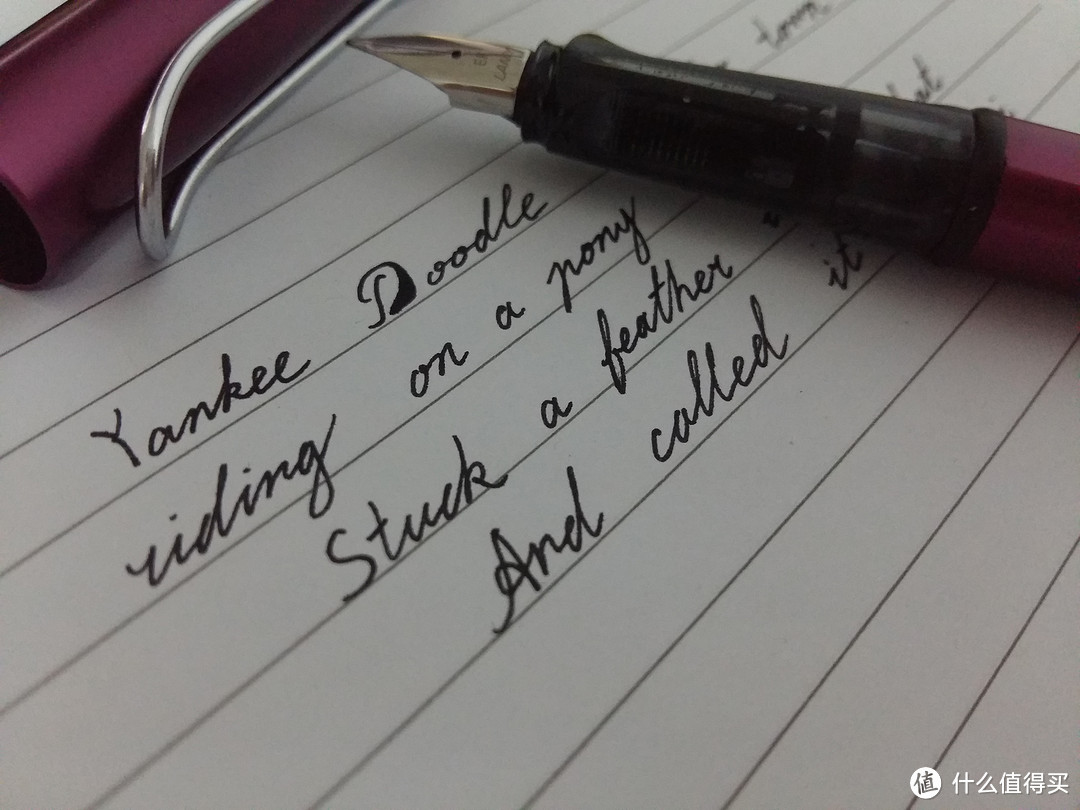 Yankee Doodle town
riding on a pony
Stuck a feather
And called it
EF
LAMY
值 什么值得买